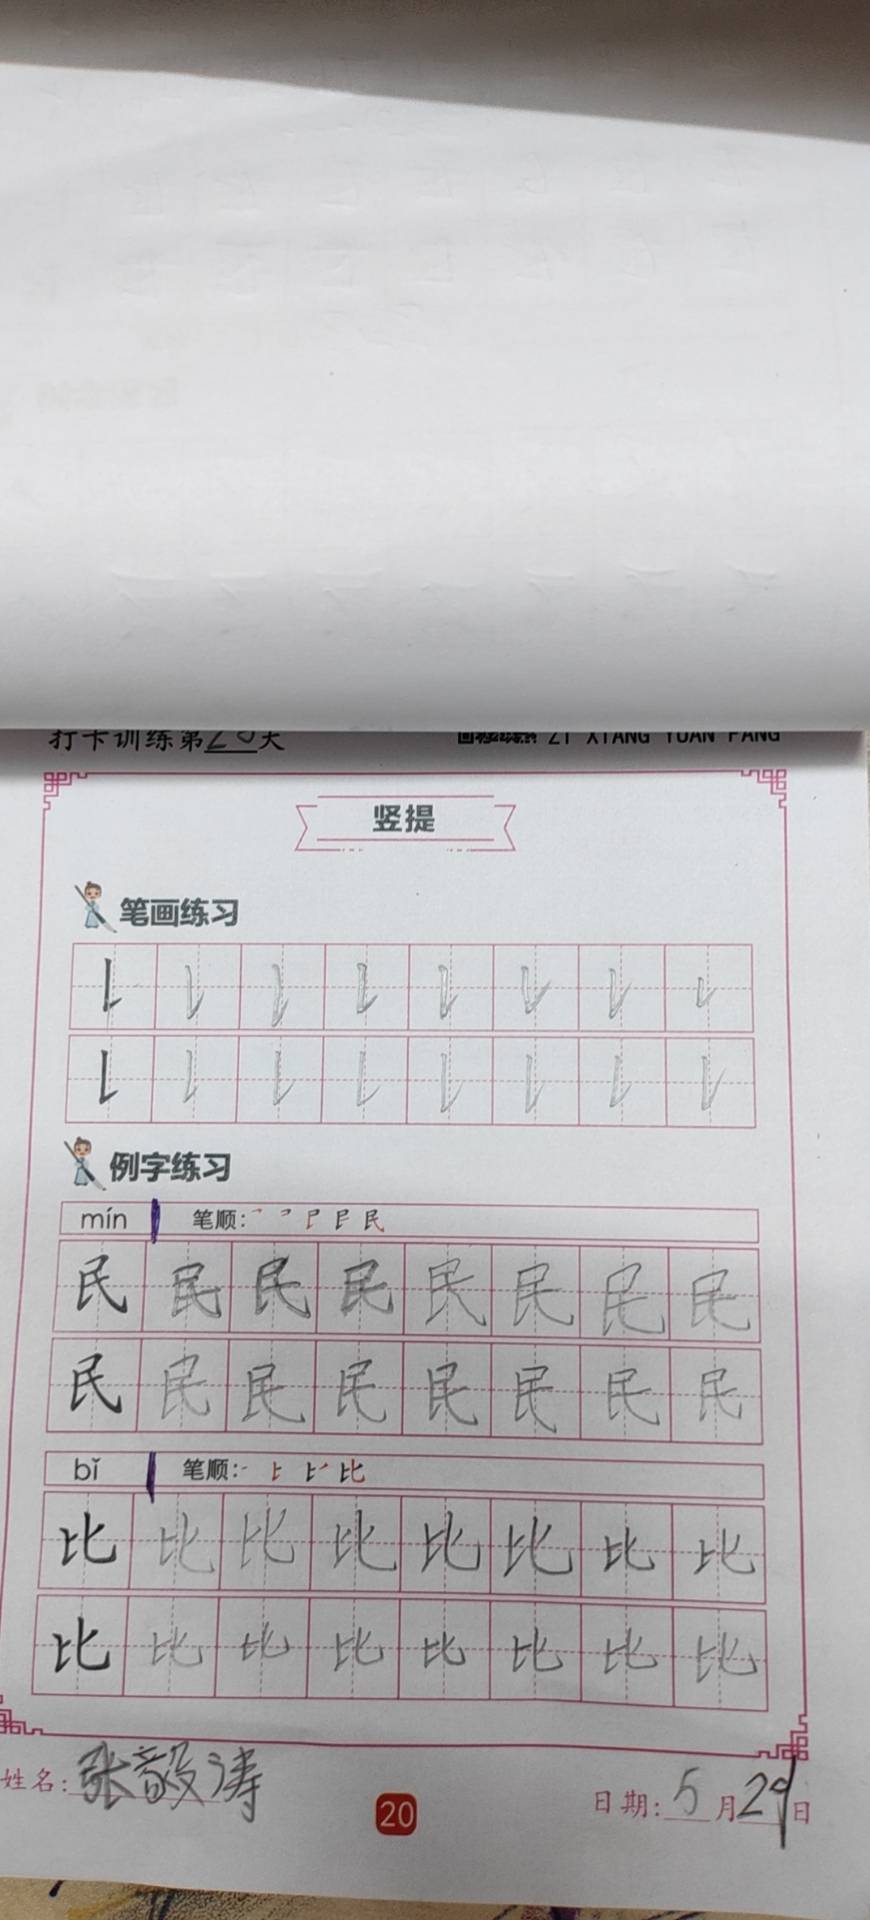 打卡训练第20天 ZI XIANG YUAN FANG
竖提
笔画练习
例字练习
mín 笔顺:
民 民 民 民 民 民 民 民
民 民 民 民 民 民 民 民
bǐ 笔顺: 比
比 比 比 比 比 比 比 比
比 比 比 比 比 比 比 比
姓名: 张毅涛 20 日期: 5月29日